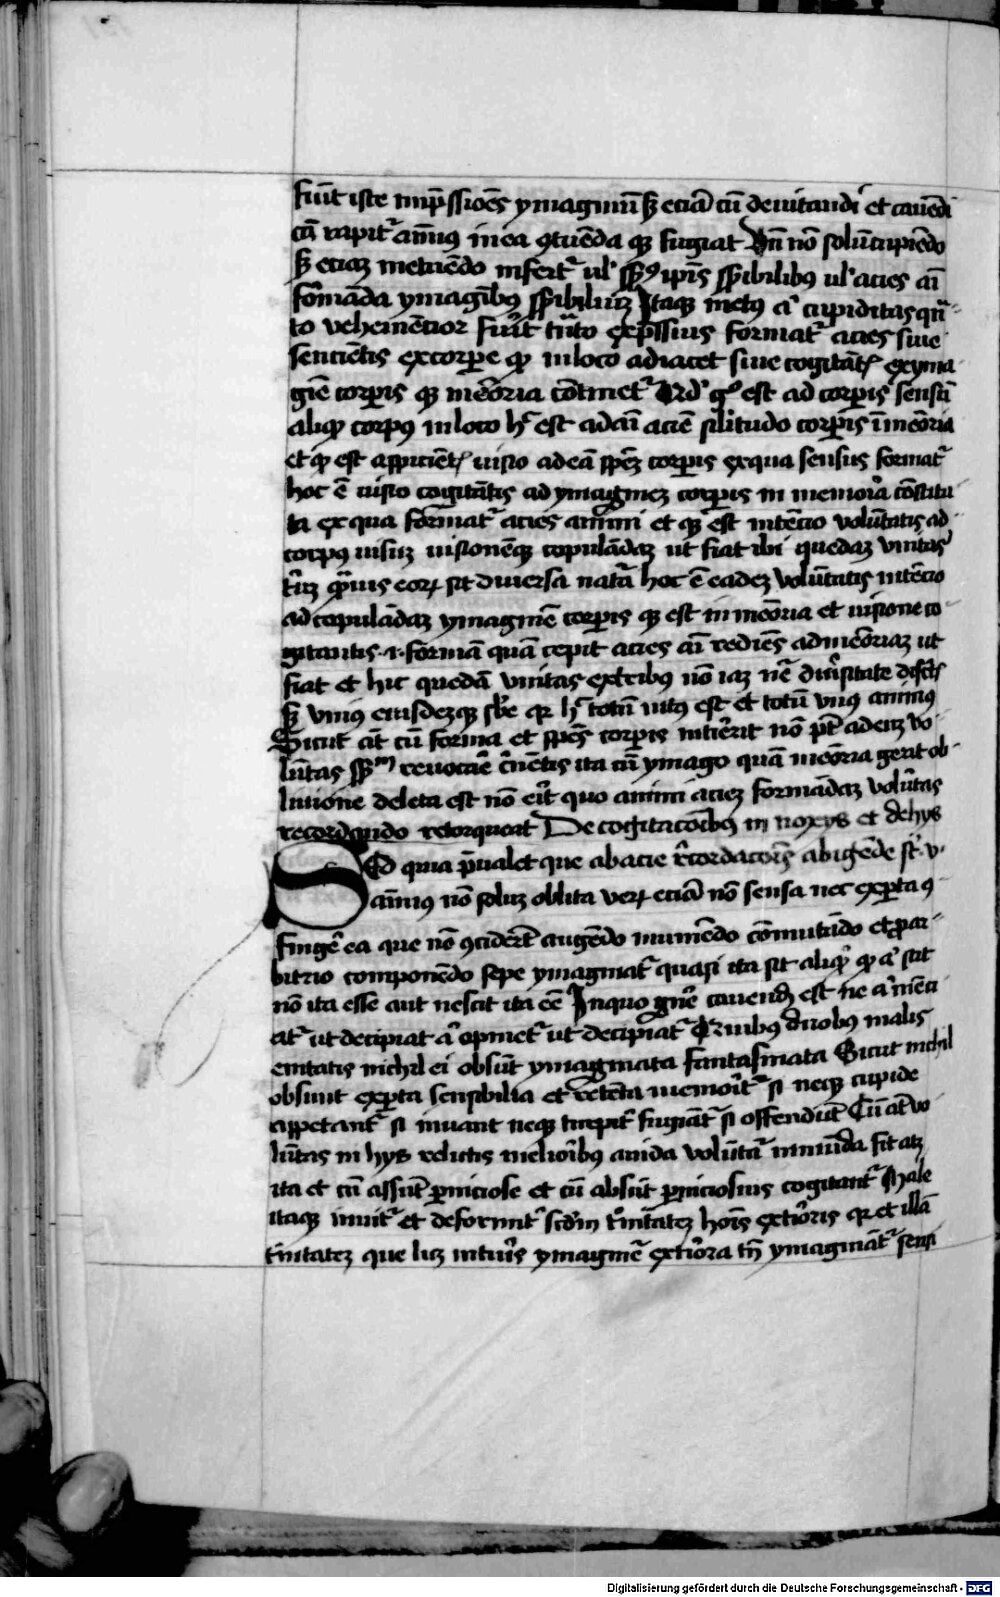 fiūt iste imp̄ssiōes ymaginū sꝫ eciā cū deuitandi et cauēdi
cā rapit᷑ aīmus in ea ꝯtuēda q̄ fugiat Vn̄ nō solū cupiēdo
sꝫ eciaꝫ metuēdo infert᷑ ul᷑ sēsꝰ ip̄is sēsibilibꝰ ul᷑ acies aī
formāda ymagībꝰ sēsibiliuꝫ Itaqꝫ metꝰ aut cupiditas q̄n
to vehemēcior fuīt tāto exp̄ssius format᷑ acies siue
sencientis ex corpe qd̓ in loco adiacet siue cogitātis ex yma
gīe corpis q̄ memoria cōtinet᷑ Qd̓ gͦ est ad corpis sensū
aliqd̓ corpꝰ in loco hͦ est ad aī aciē silitudo corpis ī meōria
et qd̓ est aspiciētis uisio ad eā spēꝫ corpis ex qua sensus format᷑
hoc ē uisio cogitātis ad ymagineꝫ corpis in memoria cōstitu
ta ex qua format᷑ acies animi et q̄ est intēcio volūtatis ad
corpꝰ uisuꝫ uisionēqꝫ copulādaꝫ ut fiat ibi quedaꝫ vnitas
triuꝫ q̄uis eoꝝ sit diuersa natā hoc ē eadeꝫ volūtatis intēcio
ad copulādaꝫ ymaginē corpis q̄ est in meōria et uisione co
gitantis .i. formā quā cepit acies aī rediēs ad meōriaꝫ ut
fiat et hic quedā vnitas ex tribus nō iaꝫ nē diu͛sitate discͣ
sꝫ vnius eiusdeꝫqꝫ sb̄e qꝛ hͦ totū intꝰ est et totū vnꝰ animus
Sicut āt cū forma et spēs corpis intierit nō pt̄ ad eaꝫ vo
lūtas sēsuꝫ reuocāe c̄nētis ita cū ymago quā meōria gerit ob
liuione deleta est nō erit quo animi acieꝫ formādaꝫ volūtas
recordando retorqueat De cogitacōibꝰ in noxys et de hys
SEd quia p̄ualet que ab acie recordacōis abigēde st̄ v.
aīmus nō soluꝫ oblita veꝝ eciā nō sensa nec experta ꝯ
fingē ea que nō ꝯciderīt augēdo minuēdo cōmutādo et p ar
bitrio componēdo sepe ymaginat᷑ quasi ita sit aliqd̓ qd̓ aut scit
nō ita esse aut nescit ita eē In quo gn̄e cauendꝫ est ne aut mēci
at᷑ ut decipiat aut opinet᷑ ut decipiat᷑ Quibus duobus malis
euitatis nichil ei obsūt ymaginata fantasmata Sicut nichil
obsunt exp̄ta sensibilia et retēta memorit᷑ si neqꝫ cupide
appetant᷑ si iuuant neqꝫ turpit᷑ fugiāt᷑ si offendūt Cū āt vo
lūtas in hys relictis meliorībꝰ auida volūtat᷑ inmūda fit atqꝫ
ita et cū assūt p̄niciose et cū absūt p̄niciosius cogitant᷑ Male
itaqꝫ uiuit᷑ et deformit᷑ scd̓m t͛nitateꝫ hoīs ext͛ioris qꝛ et illā
t͛nitateꝫ que lꝫ intͥꝰ ymaginē ext͛iora tn̄ ymaginat᷑ sensi